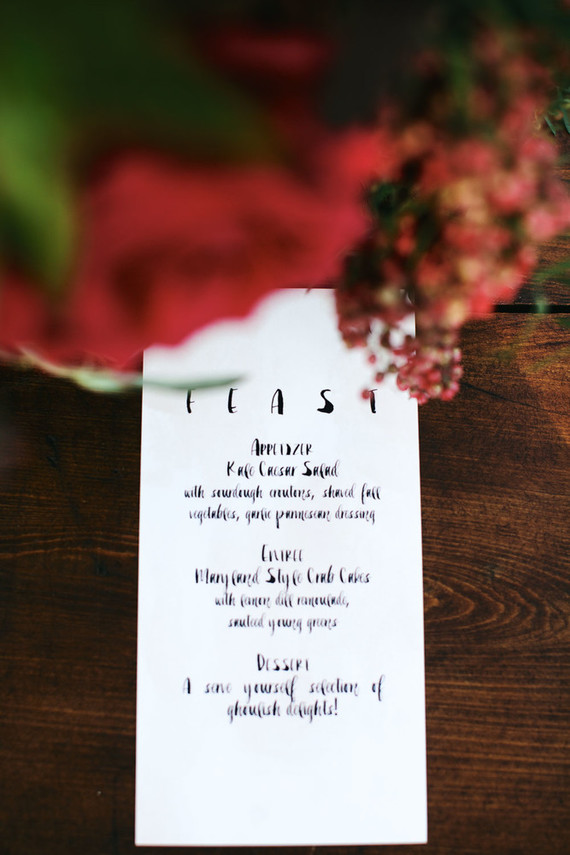 FEAST
APPETIZER
Kale Caesar Salad
with sourdough croutons, shaved fall
vegetables, garlic parmesan dressing
ENTREE
Maryland Style Crab Cakes
with lemon dill remoulade,
sauteed young greens
DESSERT
A serve yourself selection of
ghoulish delights!